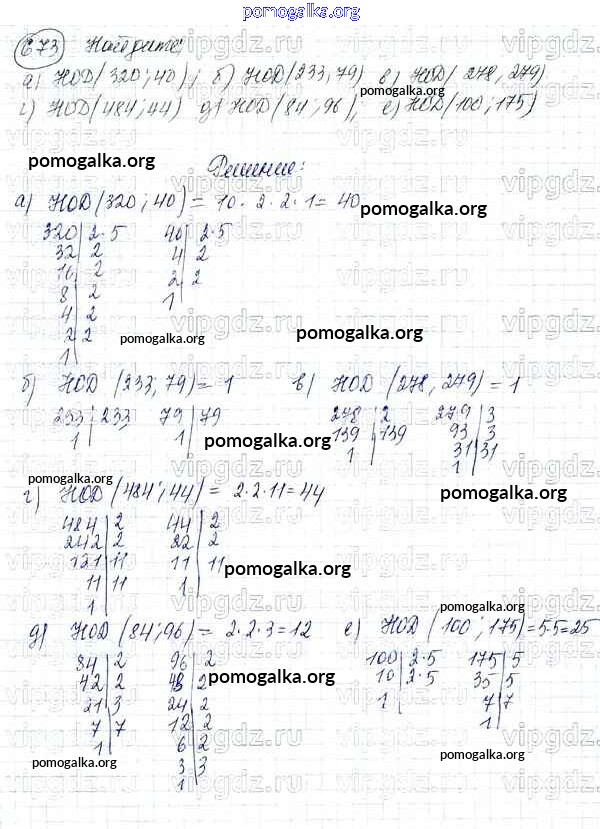 pomogalka.org
673 Найдите:
а) НОД(320;40); б) НОД(233,79) в) НОД(278,279)
pomogalka.org
г) НОД(484;44) д) НОД(84;96); е) НОД(100;175)
pomogalka.org
Решение:
а) НОД(320;40) = 10·2·2·1=40
pomogalka.org
320|2·5 40|2·5
32|2 4|2
16|2 2|2
8|2 1|
4|2
2|2
1|
pomogalka.org
pomogalka.org
б) НОД (233;79)= 1 в) НОД (278,279)=1
233|233 79|79 278|2 279|3
1| 1| 139|139 93|3
1| 31|31
1|
pomogalka.org
pomogalka.org
pomogalka.org
г) НОД (484;44)= 2·2·11=44
pomogalka.org
484|2 44|2
242|2 22|2
121|11 11|11
11|11 1|
1|
pomogalka.org
pomogalka.org
д) НОД (84;96)= 2·2·3=12 е) НОД (100;175)=5·5=25
84|2 96|2 100|2·5 175|5
42|2 48|2 10|2·5 35|5
21|3 24|2 1| 7|7
7|7 12|2 1|
1| 6|2
3|3
1|
pomogalka.org
pomogalka.org
pomogalka.org
vipgdz.ru